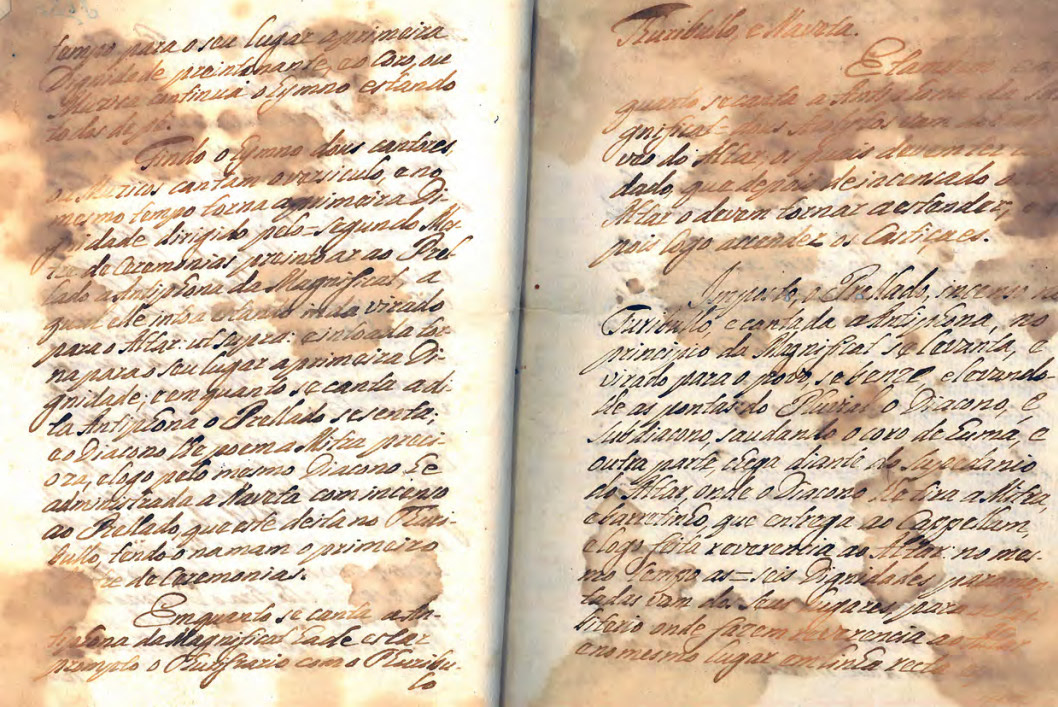 tempo para o seu lugar a primeira
Dignidade preintonante, e o Coro, ou
Muzica continua o Hymno estando
todos de pé.
Findo o Hymno dous cantores,
ou Muzicos cantam o versiculo, e no
mesmo tempo torna a primeira Di-
gnidade dirigido pelo segundo Mes-
tre de Ceremonias preintoar ao Prel
lado a Antiphona da Magnificat, a
qual elle intoa estando inda virado
para o Altar ut supra: e intoada tor
na para o seu lugar a primeira Di-
gnidade: e em quanto se canta a di-
ta Antiphona o Prellado se senta;
e o Diacono lhe poem a Mitra preci-
oza, e logo pelo mesmo Diacono he
administrada a Naveta com incenso
ao Prellado, que este deita no Thuri-
bullo, tendo o na mam o primeiro
tre de Ceremonias.
Emquanto se canta a An-
tiphona da Magnificat hade estar
prompto o Thurifrario com o Thuribu-
lo
Thuribullo, e Naveta.
E
quanto se canta a Antiphona da
gnificat dous vam
veo do Altar, os quais devem ter
dado, que depois de incensado o
Altar o devem tornar a estender, e
pois logo accender os Castiçaes.
Imposto, o Prellado, incenso
Turibullo, e cantada a Antiphona, no
principio da Magnificat se levanta, e
virado para o povo, se benze, e levando-
lhe as pontas do Pluvial o Diacono, e
Subdiacono, saudando o coro de huma, e
outra parte chega diante do Supedanio
do Altar, onde o Diacono lhe tira a Mitra,
e barretinho, que entrega ao Cappellam,
e logo feita reverencia ao Altar no mes-
mo tempo as seis Dignidades param
tadas vam dos seus lugares para
biterio onde fazem reverencia ao Altar
e no mesmo lugar em linha recta